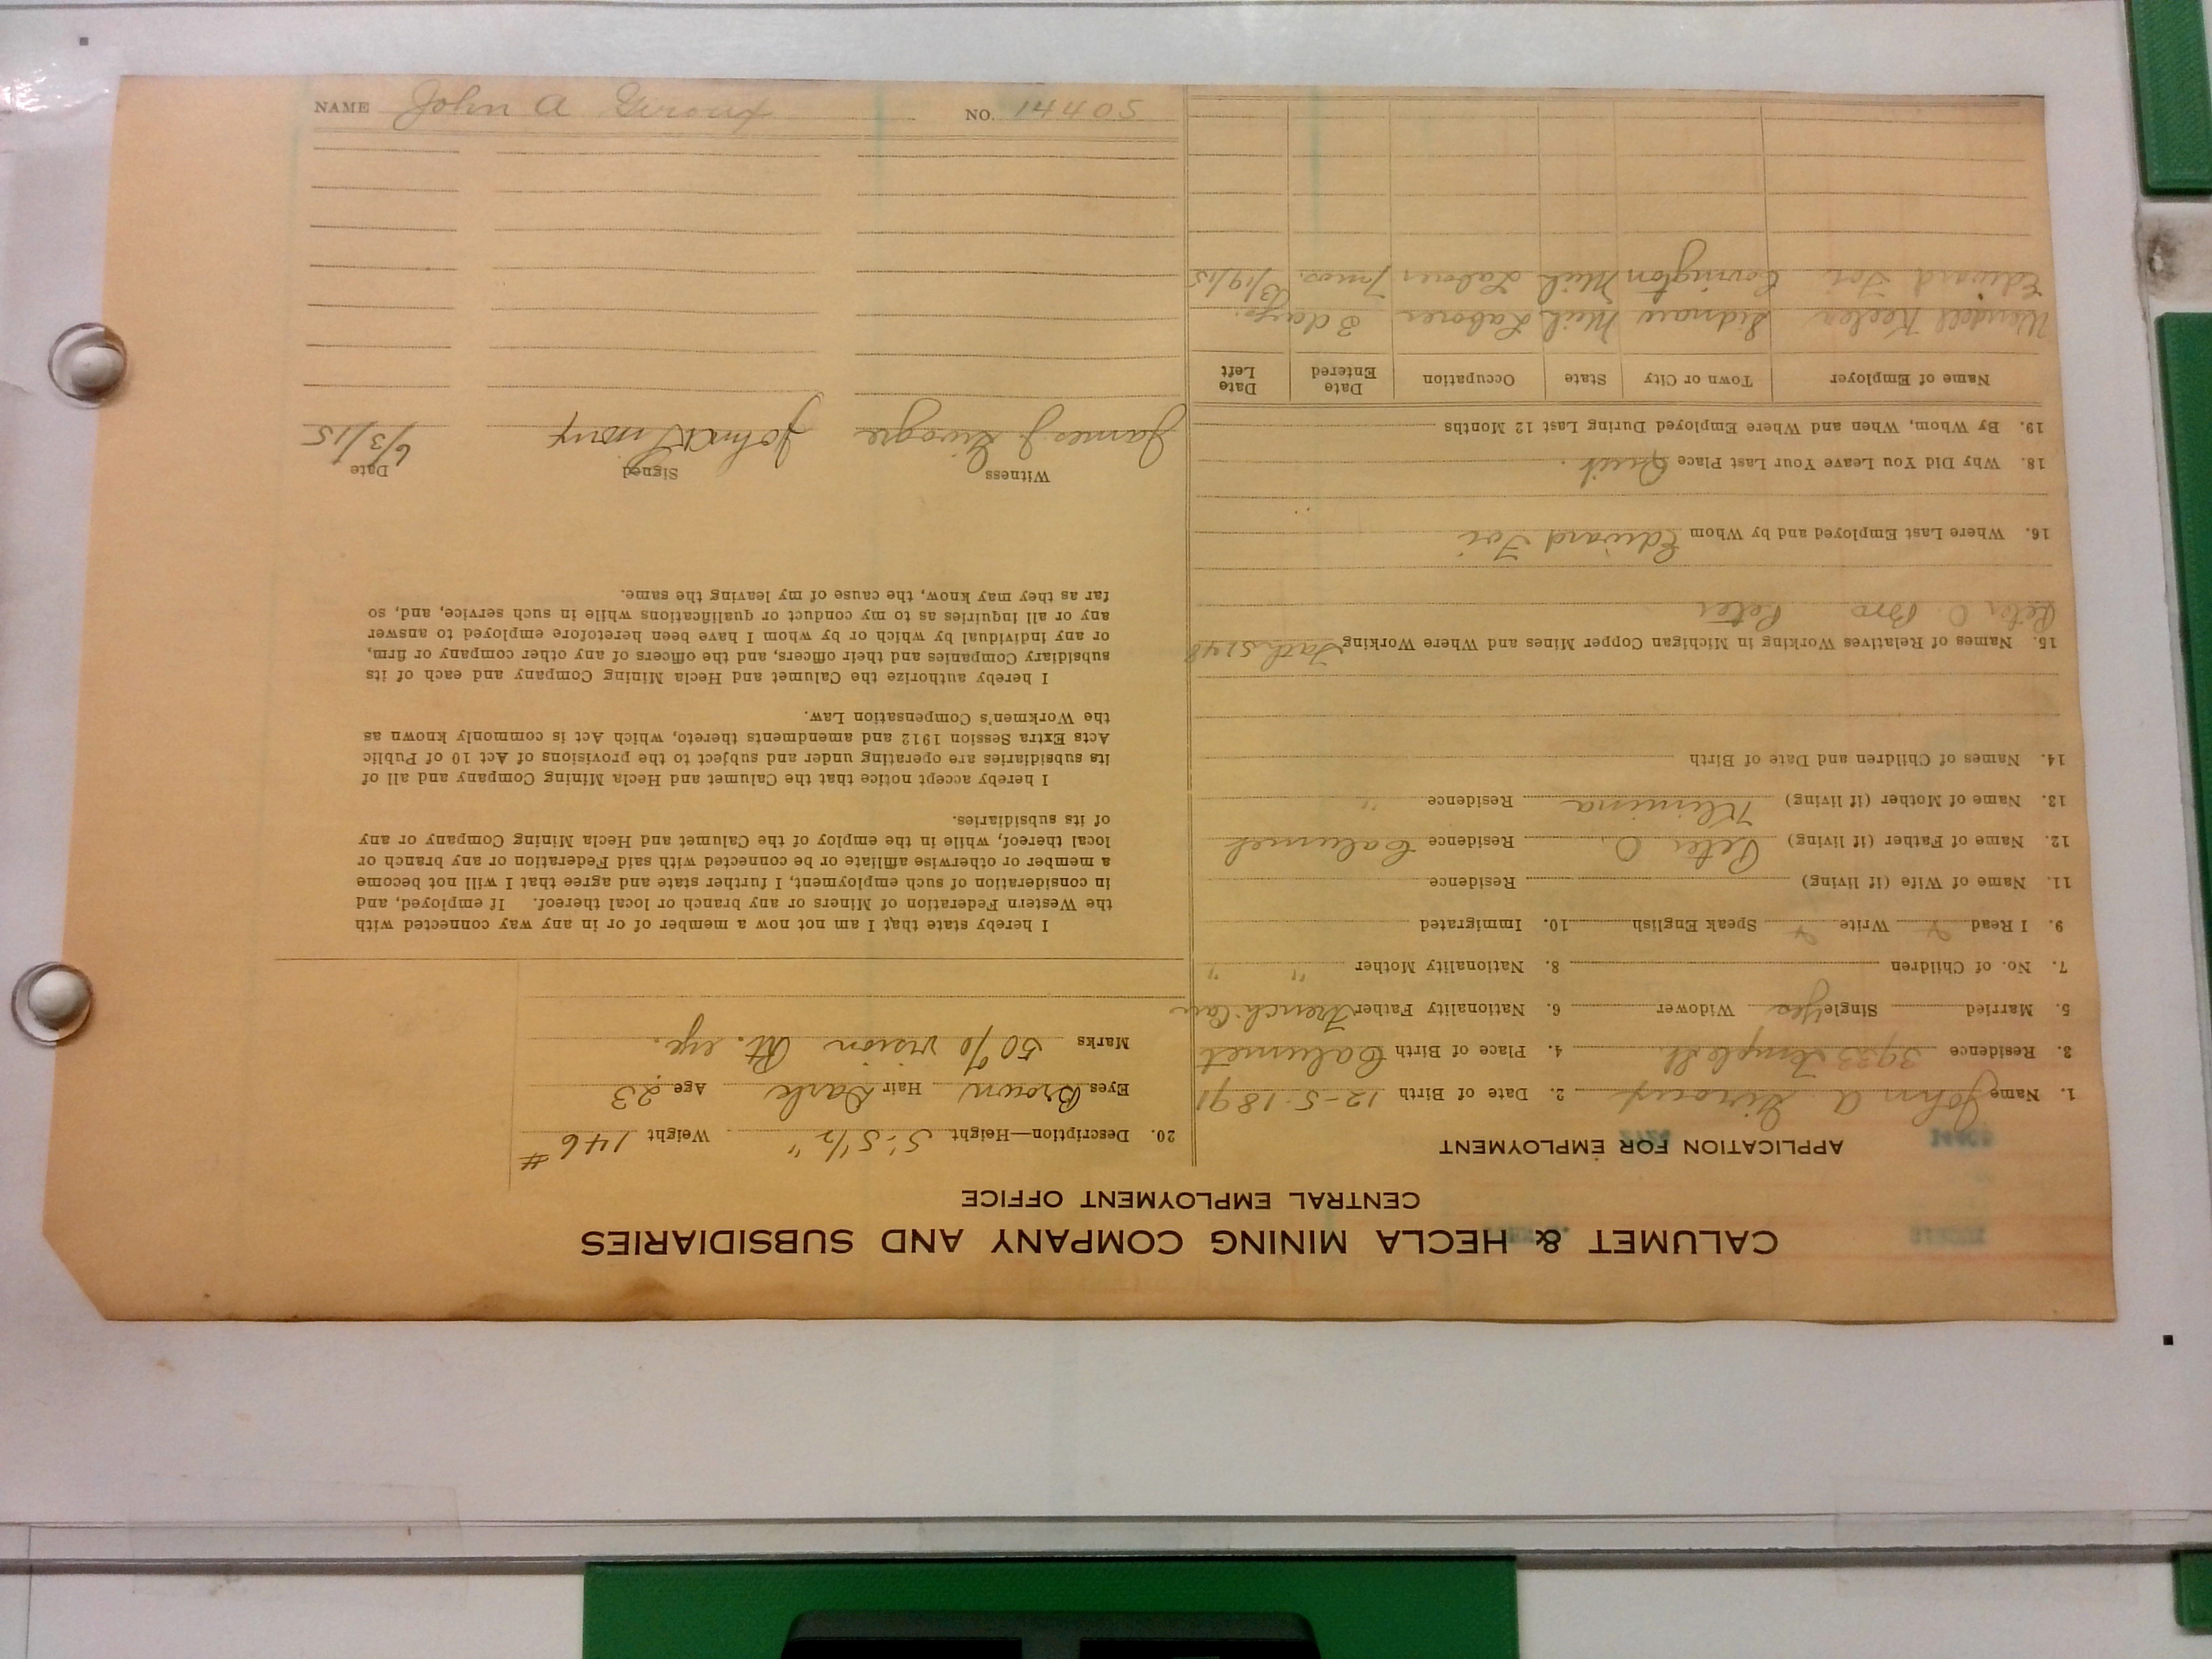 CALUMET & HECLA MINING COMPANY AND SUBSIDIARIES
CENTRAL EMPLOYMENT OFFICE
APPLICATION FOR EMPLOYMENT
1. Name John A Giroux 2. Date of Birth 12-5-1891
3. Residence 3933 Temple St. 4. Place of Birth Calumet
5. Married Single Yes Widower 6. Nationality Father French Can
7. No. of Children 8. Nationality Mother " "
9. I Read Y Write Y Speak English 10. Immigrated
11. Name of Wife (if living) Residence
12. Name of Father (if living) Peter O. Residence Calumet
13. Name of Mother (if living) Residence "
14. Names of Children and Date of Birth
15. Names of Relatives Working in Michigan Copper Mines and Where Working Fath 5248
Peter O. Bro Peter
16. Where Last Employed and by Whom Edward
18. Why Did You Leave Your Last Place Quit.
19. By Whom, When and Where Employed During Last 12 Months
Name of Employer Town or City State Occupation Date Entered Date Left
Wendell Keeler Sidnaw Mich Laborer 3 days.
Edward Covington Mich Laborer 7 mos. 3/19/15
20. Description—Height 5'-5 1/2" Weight 146 #
Eyes Brown Hair Dark Age 23
Marks 50% vision Rt. eye.
I hereby state that I am not now a member of or in any way connected with
the Western Federation of Miners or any branch or local thereof. If employed, and
in consideration of such employment, I further state and agree that I will not become
a member or otherwise affiliate or be connected with said Federation or any branch or
local thereof, while in the employ of the Calumet and Hecla Mining Company or any
of its subsidiaries.
I hereby accept notice that the Calumet and Hecla Mining Company and all of
its subsidiaries are operating under and subject to the provisions of Act 10 of Public
Acts Extra Session 1912 and amendments thereto, which Act is commonly known as
the Workmen's Compensation Law.
I hereby authorize the Calumet and Hecla Mining Company and each of its
subsidiary Companies and their officers, and the officers of any other company or firm,
or any individual by which or by whom I have been heretofore employed to answer
any or all inquiries as to my conduct or qualifications while in such service, and, so
far as they may know, the cause of my leaving the same.
Witness Signed Date
James J. John A Giroux 6/3/15
NAME John A Giroux NO. 14405